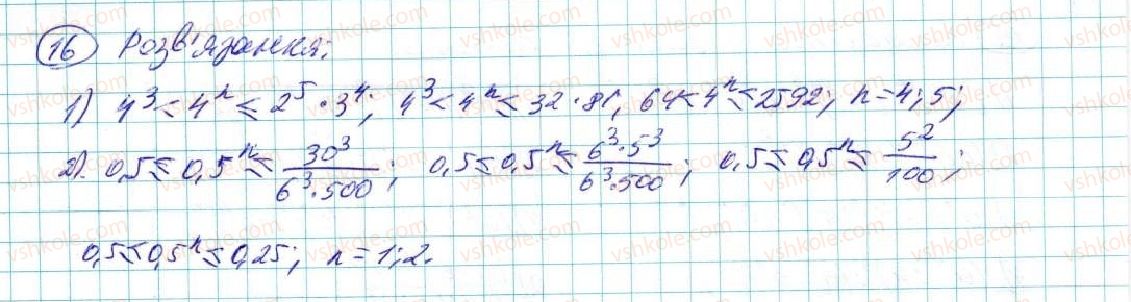 16 Розв'язання.
1) 4³ < 4ⁿ ≤ 2⁵·3⁴; 4³ < 4ⁿ ≤ 32·81, 64 < 4ⁿ ≤ 2592; n = 4; 5;
2). 0,5 ≤ 0,5ⁿ ≤ 30³/(6³·500); 0,5 ≤ 0,5ⁿ ≤ (6³·5³)/(6³·500); 0,5 ≤ 0,5ⁿ ≤ 5²/100;
0,5 ≤ 0,5ⁿ ≤ 0,25; n = 1; 2.